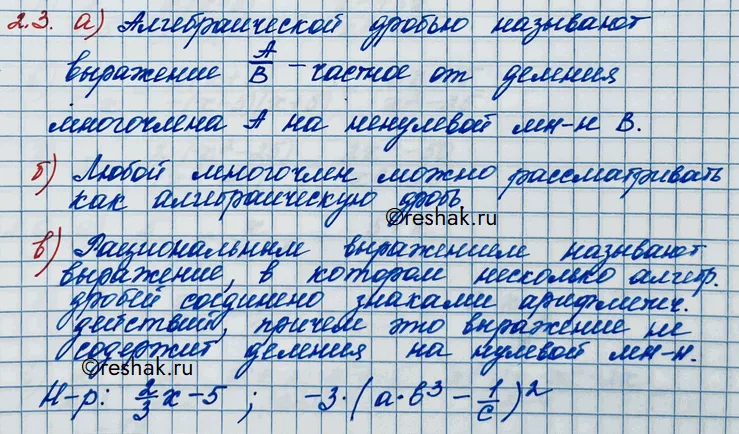 2.3. а) Алгебраической дробью называют
выражение A/B – частное от деления
многочлена A на ненулевой мн-н B.
б) Любой многочлен можно рассматривать
как алгебраическую дробь.
©reshak.ru
в) Рациональным выражением называют
выражение, в котором несколько алгебр.
дробей соединено знаками арифметич.
действий, причем это выражение не
содержит деления на нулевой мн-н.
©reshak.ru
Н-р: 2/3 x – 5 ; –3·(a·b³ – 1/c)²